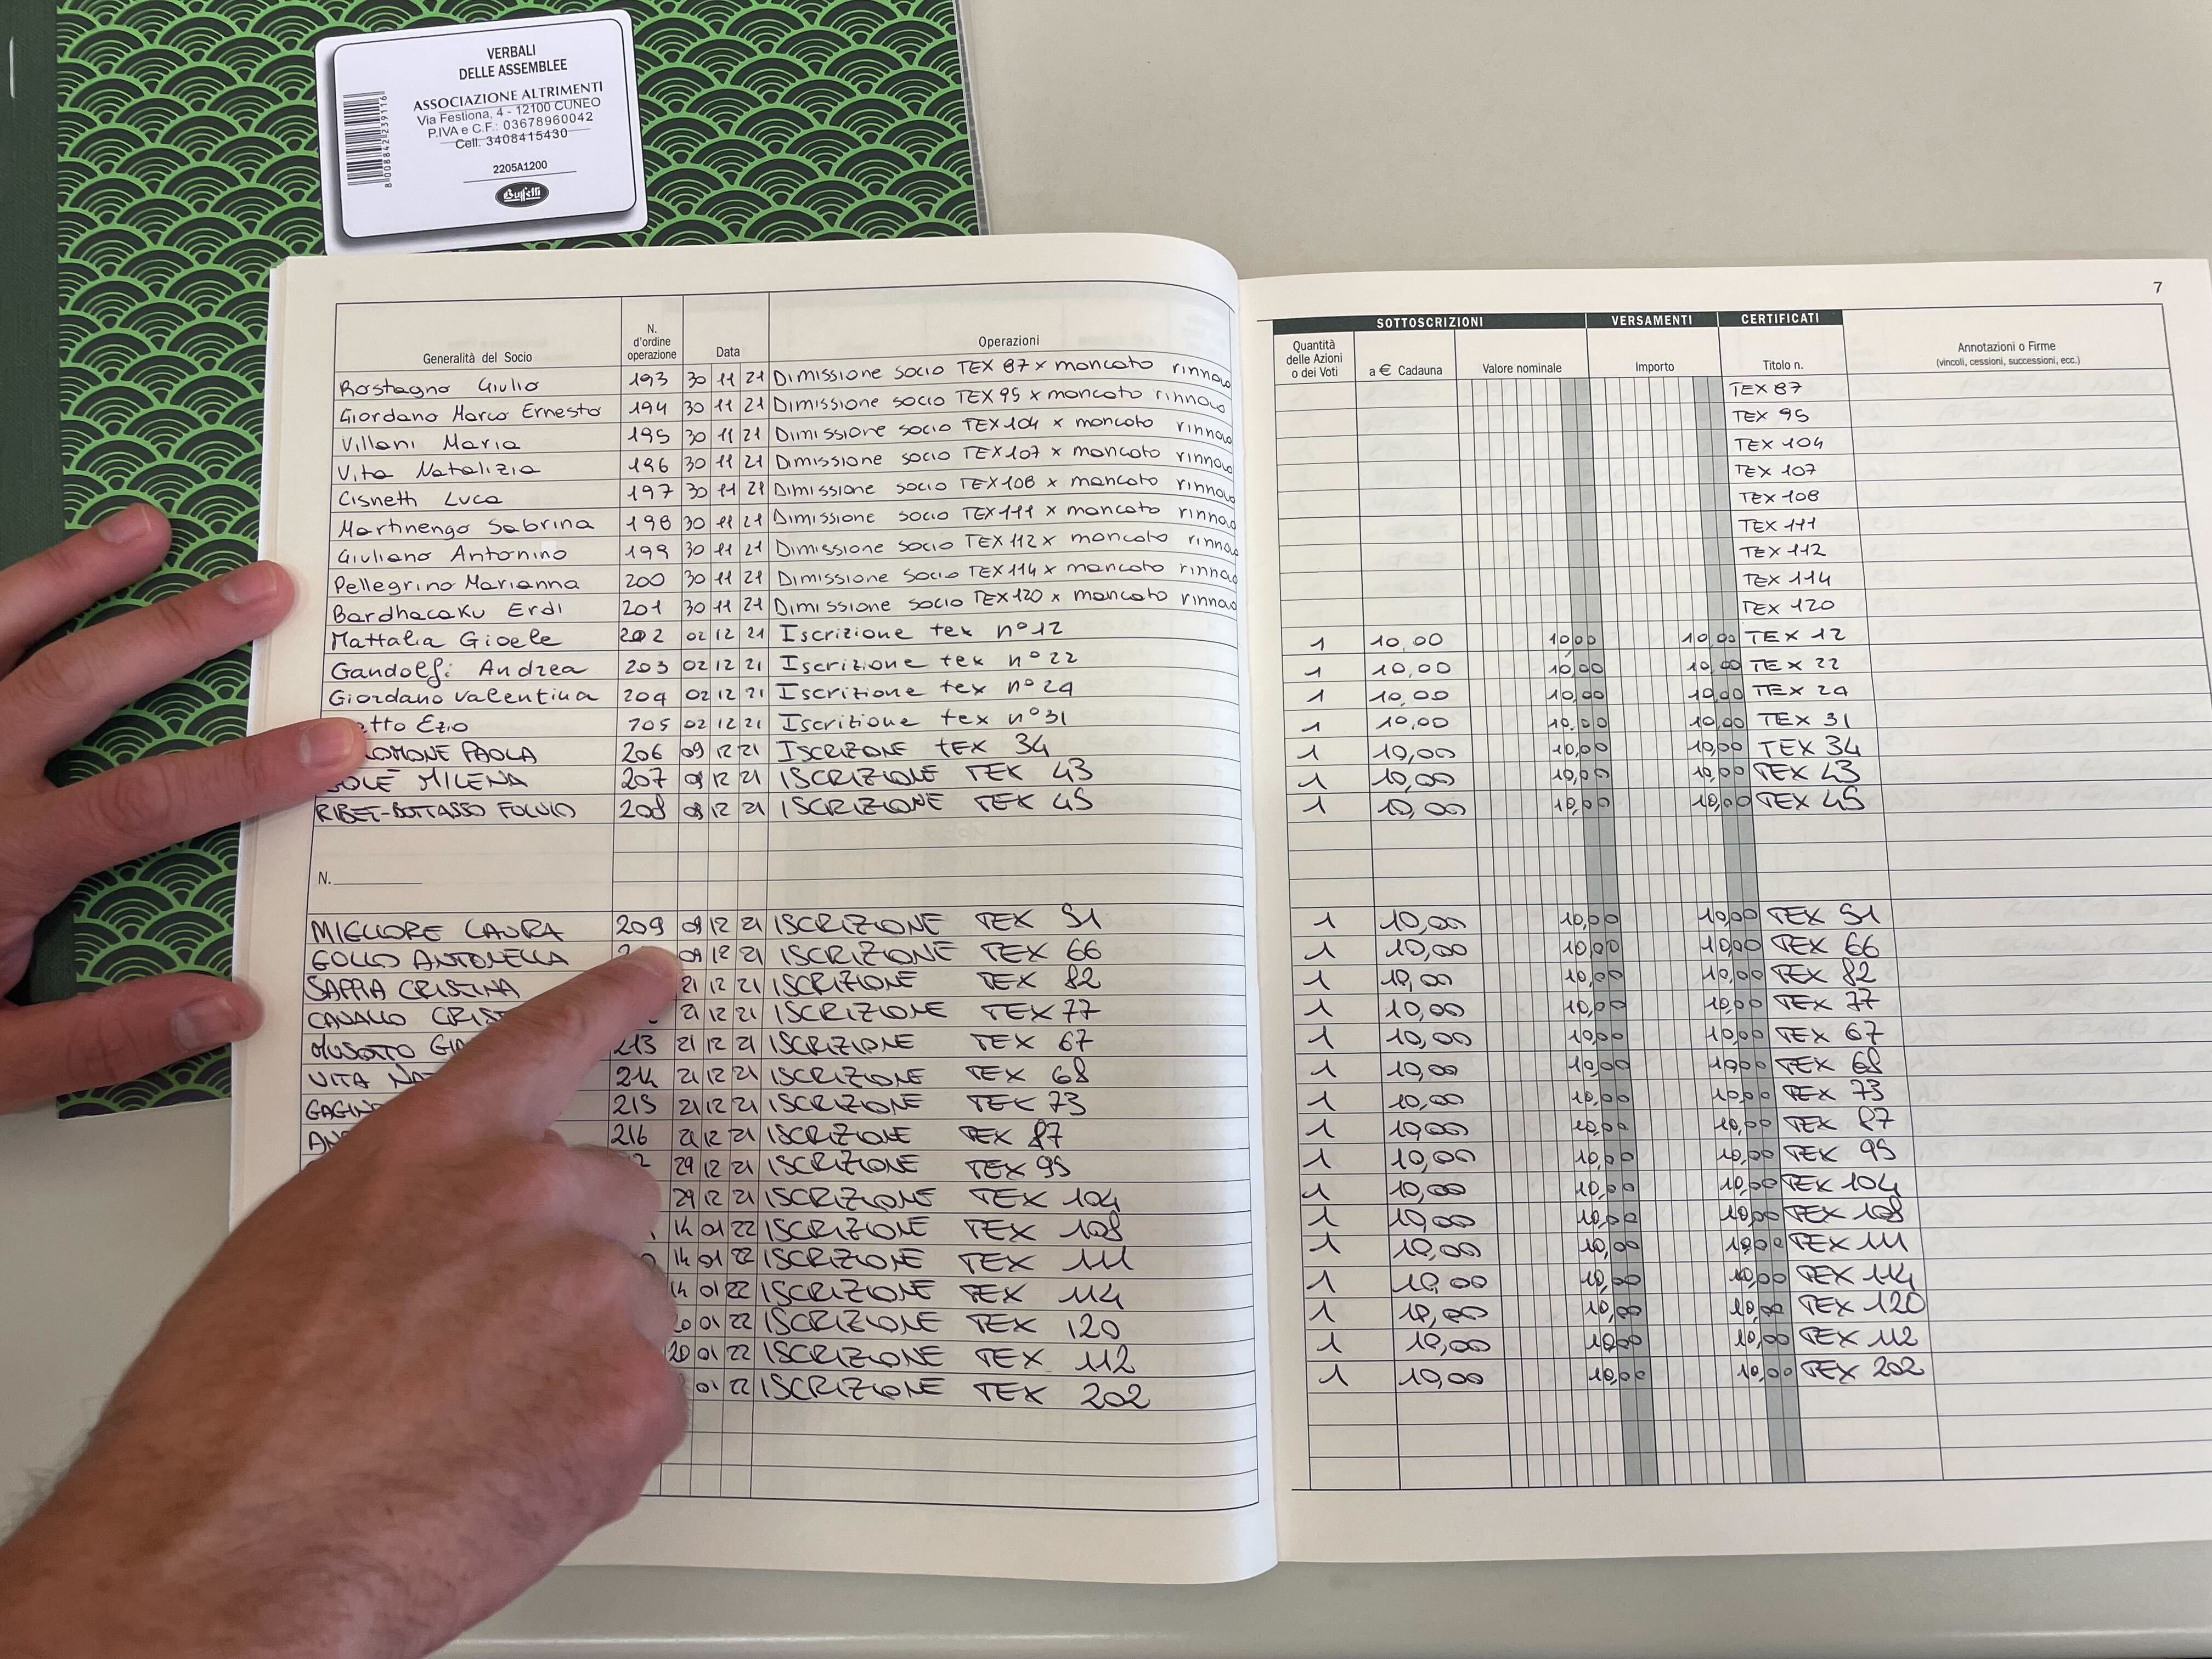 VERBALI
DELLE ASSEMBLEE
ASSOCIAZIONE ALTRIMENTI
Via Festiona, 4 - 12100 CUNEO
P.IVA e C.F.: 03678960042
Cell. 3408415430
2205A1200
Buffetti
8008842239116
7
SOTTOSCRIZIONI VERSAMENTI CERTIFICATI
Generalità del Socio N. d'ordine operazione Data Operazioni Quantità delle Azioni o dei Voti a € Cadauna Valore nominale Importo Titolo n. Annotazioni o Firme (vincoli, cessioni, successioni, ecc.)
Rostagno Giulio 193 30 11 21 Dimissione socio TEX 87 x mancato rinnovo TEX 87
Giordano Marco Ernesto 194 30 11 21 Dimissione socio TEX 95 x mancato rinnovo TEX 95
Villani Maria 195 30 11 21 Dimissione socio TEX 104 x mancato rinnovo TEX 104
Vita Natalizia 196 30 11 21 Dimissione socio TEX 107 x mancato rinnovo TEX 107
Cisnetti Luca 197 30 11 21 Dimissione socio TEX 108 x mancato rinnovo TEX 108
Martinengo Sabrina 198 30 11 21 Dimissione socio TEX 111 x mancato rinnovo TEX 111
Giuliano Antonino 199 30 11 21 Dimissione socio TEX 112 x mancato rinnovo TEX 112
Pellegrino Marianna 200 30 11 21 Dimissione socio TEX 114 x mancato rinnovo TEX 114
Bardhacaku Erdi 201 30 11 21 Dimissione socio TEX 120 x mancato rinnovo TEX 120
Mattalia Gioele 202 02 12 21 Iscrizione tex n° 12 1 10,00 10,00 10,00 TEX 12
Gandolfi Andrea 203 02 12 21 Iscrizione tex n° 22 1 10,00 10,00 10,00 TEX 22
Giordano Valentina 204 02 12 21 Iscrizione tex n° 24 1 10,00 10,00 10,00 TEX 24
Ezio 205 02 12 21 Iscrizione tex n° 31 1 10,00 10,00 10,00 TEX 31
PAOLA 206 09 12 21 ISCRIZIONE tEX 34 1 10,00 10,00 10,00 TEX 34
MILENA 207 09 12 21 ISCRIZIONE TEX 43 1 10,00 10,00 10,00 TEX 43
RIBET-BOTTASSO FULVIO 208 09 12 21 ISCRIZIONE TEX 45 1 10,00 10,00 10,00 TEX 45
N.
MIGLIORE LAURA 209 09 12 21 ISCRIZIONE TEX 51 1 10,00 10,00 10,00 TEX 51
GOLLO ANTONELLA 09 12 21 ISCRIZIONE TEX 66 1 10,00 10,00 10,00 TEX 66
SAPPIA CRISTINA 21 12 21 ISCRIZIONE TEX 82 1 10,00 10,00 10,00 TEX 82
CAVALLO 21 12 21 ISCRIZIONE TEX 77 1 10,00 10,00 10,00 TEX 77
MUSOTTO 213 21 12 21 ISCRIZIONE TEX 67 1 10,00 10,00 10,00 TEX 67
VITA 214 21 12 21 ISCRIZIONE TEX 68 1 10,00 10,00 10,00 TEX 68
215 21 12 21 ISCRIZIONE TEX 73 1 10,00 10,00 10,00 TEX 73
216 21 12 21 ISCRIZIONE TEX 87 1 10,00 10,00 10,00 TEX 87
29 12 21 ISCRIZIONE TEX 95 1 10,00 10,00 10,00 TEX 95
29 12 21 ISCRIZIONE TEX 104 1 10,00 10,00 10,00 TEX 104
14 01 22 ISCRIZIONE TEX 108 1 10,00 10,00 10,00 TEX 108
14 01 22 ISCRIZIONE TEX 111 1 10,00 10,00 10,00 TEX 111
14 01 22 ISCRIZIONE TEX 114 1 10,00 10,00 10,00 TEX 114
20 01 22 ISCRIZIONE TEX 120 1 10,00 10,00 10,00 TEX 120
20 01 22 ISCRIZIONE TEX 112 1 10,00 10,00 10,00 TEX 112
01 22 ISCRIZIONE TEX 202 1 10,00 10,00 10,00 TEX 202